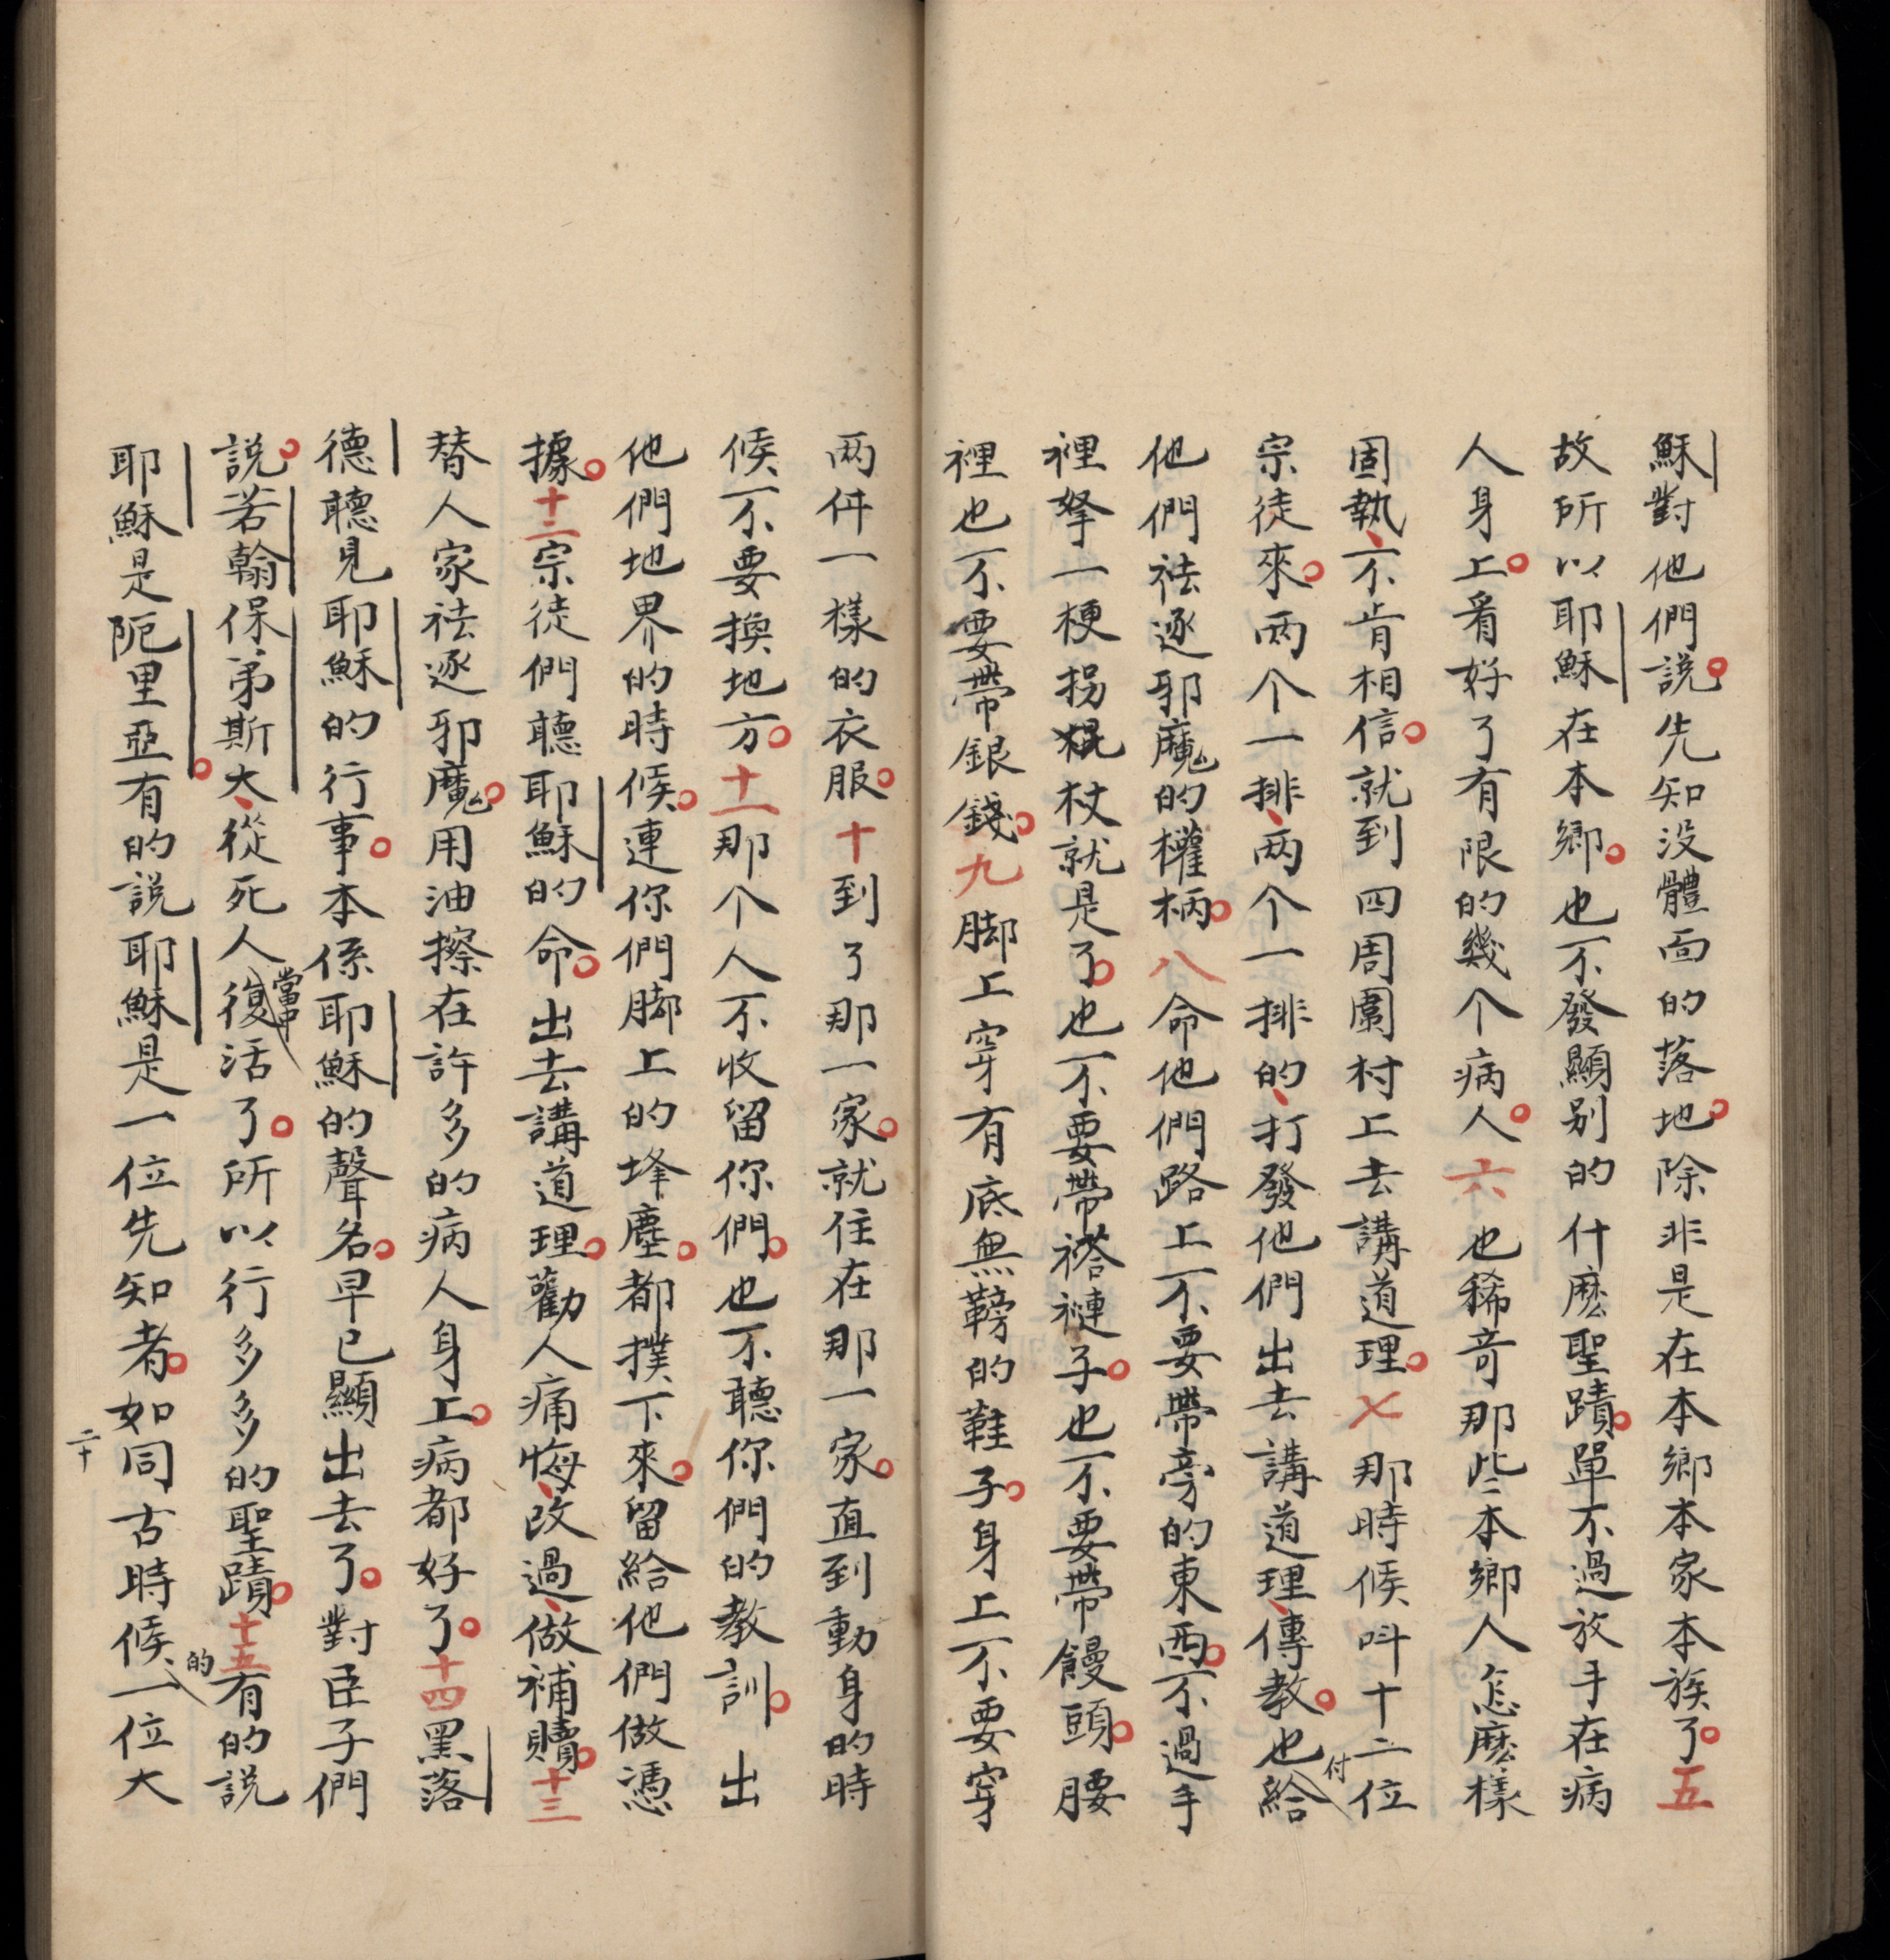 穌對他們説。先知没體面的落地。除非是在本鄉本家本族了。五
故所以耶穌在本鄉。也不發顯别的什麽聖蹟。單不過放手在病
人身上。看好了有限的幾个病人。六也稀奇那些本鄉人怎麽樣
固執、不肯相信。就到四周圍村上去講道理。七那時候呌十二位
宗徒來。兩个一排、两个一排的、打發他們出去講道理、傳教。也付給
他們祛逐邪魔的權柄。八命他們路上不要帶旁的東西。不過手
裡拏一梗拐棍杖就是了。也不要帶褡褳子。也不要帶饅頭。腰
裡也不要帶銀錢。九脚上穿有底無鞤的鞋子。身上不要穿
两件一樣的衣服。十到了那一家。就住在那一家。直到動身的時
候不要換地方。十一那个人不收留你們。也不聽你們的教訓。出
他們地界的時候。連你們脚上的埄塵。都撲下來。留給他們做憑
據。十二宗徒們聽耶穌的命。出去講道理。勸人痛悔、改過、做補贖。十三
替人家祛逐邪魔。用油擦在許多的病人身上。病都好了。十四黑落
德聽見耶穌的行事。本係耶穌的聲名。早已顯出去了。對臣子們
説。若翰保弟斯大、從死人當中復活了。所以行多多的聖蹟。十五有的説
耶穌是阨里亞。有的説耶穌是一位先知者。如同古時候的一位大
二十